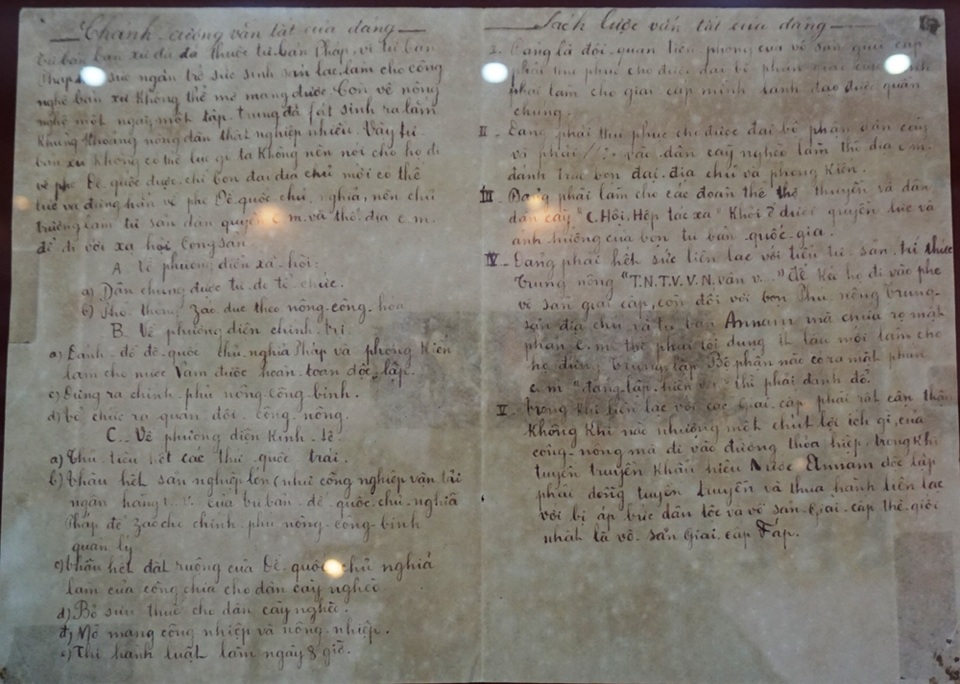 Chánh cương vắn tắt của đảng
tư bản bản xứ đã đã thuộc tư bản Pháp, vì tư bản
Pháp sức ngăn trở sức sinh sản lac, làm cho công
nghệ bản xứ không thể mở mang được. Còn về nông
nghệ một ngày một tập trung đã fát sinh ra lắm
khủng khoảng nông dân thất nghiệp nhiều. Vậy tư
bản xứ không có thế lực gì ta không nên nói cho họ đi
về phe Đế quốc được, chỉ bọn đại địa chủ mới có thế
lực và đứng hẳn về phe Đế quốc chủ nghĩa, nên chủ
trương làm tư sản dân quyền c.m. và thổ địa c.m.
để đi với xã hội Cộng sản
A. Về phương diện xã hội:
a) Dân chúng được tự do tổ chức.
Phổ thông záo dục theo nông công hóa
B. Về phương diện chính trị
a) Đánh đổ đế quốc chủ nghĩa Pháp và phong kiến
làm cho nước Nam được hoàn toàn độc lập.
c) Dựng ra chính phủ nông công binh.
d) tổ chức ra quân đội công nông.
C. Về phương diện Kinh tế
a) Thủ tiêu hết các thứ quốc trái.
b) thâu hết sản nghiệp lớn (như công nghiệp vận tải
ngân hàng v.v. của tư bản đế quốc chủ nghĩa
Pháp để záo cho chính phủ nông công binh
quản lý
c) thâu hết đất ruộng của Đế quốc chủ nghĩa
làm của công chia cho dân cày nghèo
d) Bỏ sưu thuế cho dân cày nghèo.
đ) Mở mang công nghiệp và nông nghiệp.
e) Thi hành luật làm ngày 8 giờ.
Sách lược vắn tắt của đảng
I. Đảng là đội quân tiên phong của vô sản giai cấp
phải thu phục cho được đại bộ phận giai cấp mình
phải làm cho giai cấp mình lãnh đạo được quần
chúng.
II. Đảng phải thu phục cho được đại bộ phận dân cày
và phải vào dân cày nghèo làm thổ địa c.m.
đánh trúc bọn đại địa chủ và phong kiến.
III. Đảng phải làm cho các đoàn thể thợ thuyền và dân
dân cày "C.Hội, Hợp tác xã" khỏi ở dưới quyền lực và
ảnh hưởng của bọn tư bản quốc gia.
IV. Đảng phải hết sức liên lạc với tiểu tư sản, trí thức
Trung nông "T.N.T.V.V.N. vân v.." để kéo họ đi vào phe
vô sản giai cấp, còn đối với bọn Phú nông Trung
sản địa chủ và tư bản Annam mà chưa rõ mặt
phản c.m. thì phải lợi dụng ít lâu mới làm cho
họ đứng Trung lập. Bộ phận nào có ra mặt phản
c.m "đảng lập hiến" thì phải đánh đổ.
V. trong khi liên lạc với các Giai cấp phải rất cẩn thận
không khi nào nhượng một chút lợi ích gì của
công nông mà đi vào đường thỏa hiệp, trong khi
tuyên truyền khẩu hiệu Nước Annam độc lập
phải đồng tuyên truyền và thưa hành liên lạc
với bị áp bức dân tộc và vô sản Giai cấp thế giới
nhất là vô sản Giai cấp Fáp.